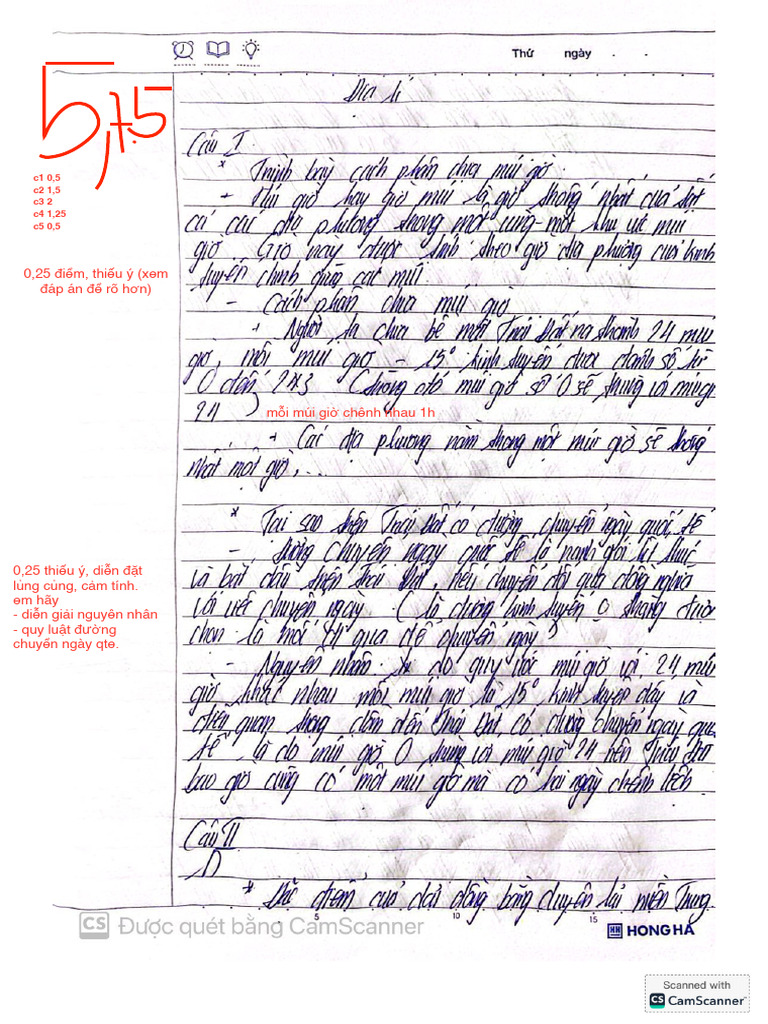 Thứ ngày . .
5,75
Địa lí
c1 0,5
c2 1,5
c3 2
c4 1,25
c5 0,5
Câu I
* Trình bày cách phân chia múi giờ
+ Múi giờ hay giờ múi là giờ thống nhất của tất
cả các địa phương trong một cùng một khu vực múi
giờ. Giờ này được tính theo giờ địa phương của kinh
tuyến chính giữa các múi.
0,25 điểm, thiếu ý (xem
đáp án để rõ hơn)
- Cách phân chia múi giờ
+ Người ta chia bề mặt Trái Đất ra thành 24 múi
giờ, mỗi múi giờ - 15° kinh tuyến được đánh số từ
0 đến 23 (trong đó múi giờ số 0 sẽ trùng với múi giờ
24)
mỗi múi giờ chênh nhau 1h
+ Các địa phương nằm trong một múi giờ sẽ thống
nhất một giờ, ...
* Tại sao trên Trái Đất có đường chuyển ngày quốc tế
- Đường chuyển ngày quốc tế là ranh giới kết thúc
và bắt đầu trên Trái Đất, nếu chuyển đổi qua đồng nghĩa
với việc chuyển ngày. ( là đường kinh tuyến 0 thường được
chọn là mỗi qua để chuyển ngày)
0,25 thiếu ý, diễn đạt
lủng củng, cảm tính.
em hãy
- diễn giải nguyên nhân
- quy luật đường
chuyển ngày qte.
- Nguyên nhân: do quy ước múi giờ với 24 múi
giờ khác nhau mỗi múi giờ là 15° kinh tuyến đây là
điều quan trọng dẫn đến Trái Đất có đường chuyển ngày quốc
tế là do múi giờ 0 trùng với múi giờ 24 nên Trái Đất
bao giờ cũng có một múi giờ mà có hai ngày chênh lệch.
Câu II
1)
* Đặc điểm của dải đồng bằng duyên hải miền Trung.
5 10 15
CS Được quét bằng CamScanner
HH HONG HA
Scanned with
CS CamScanner